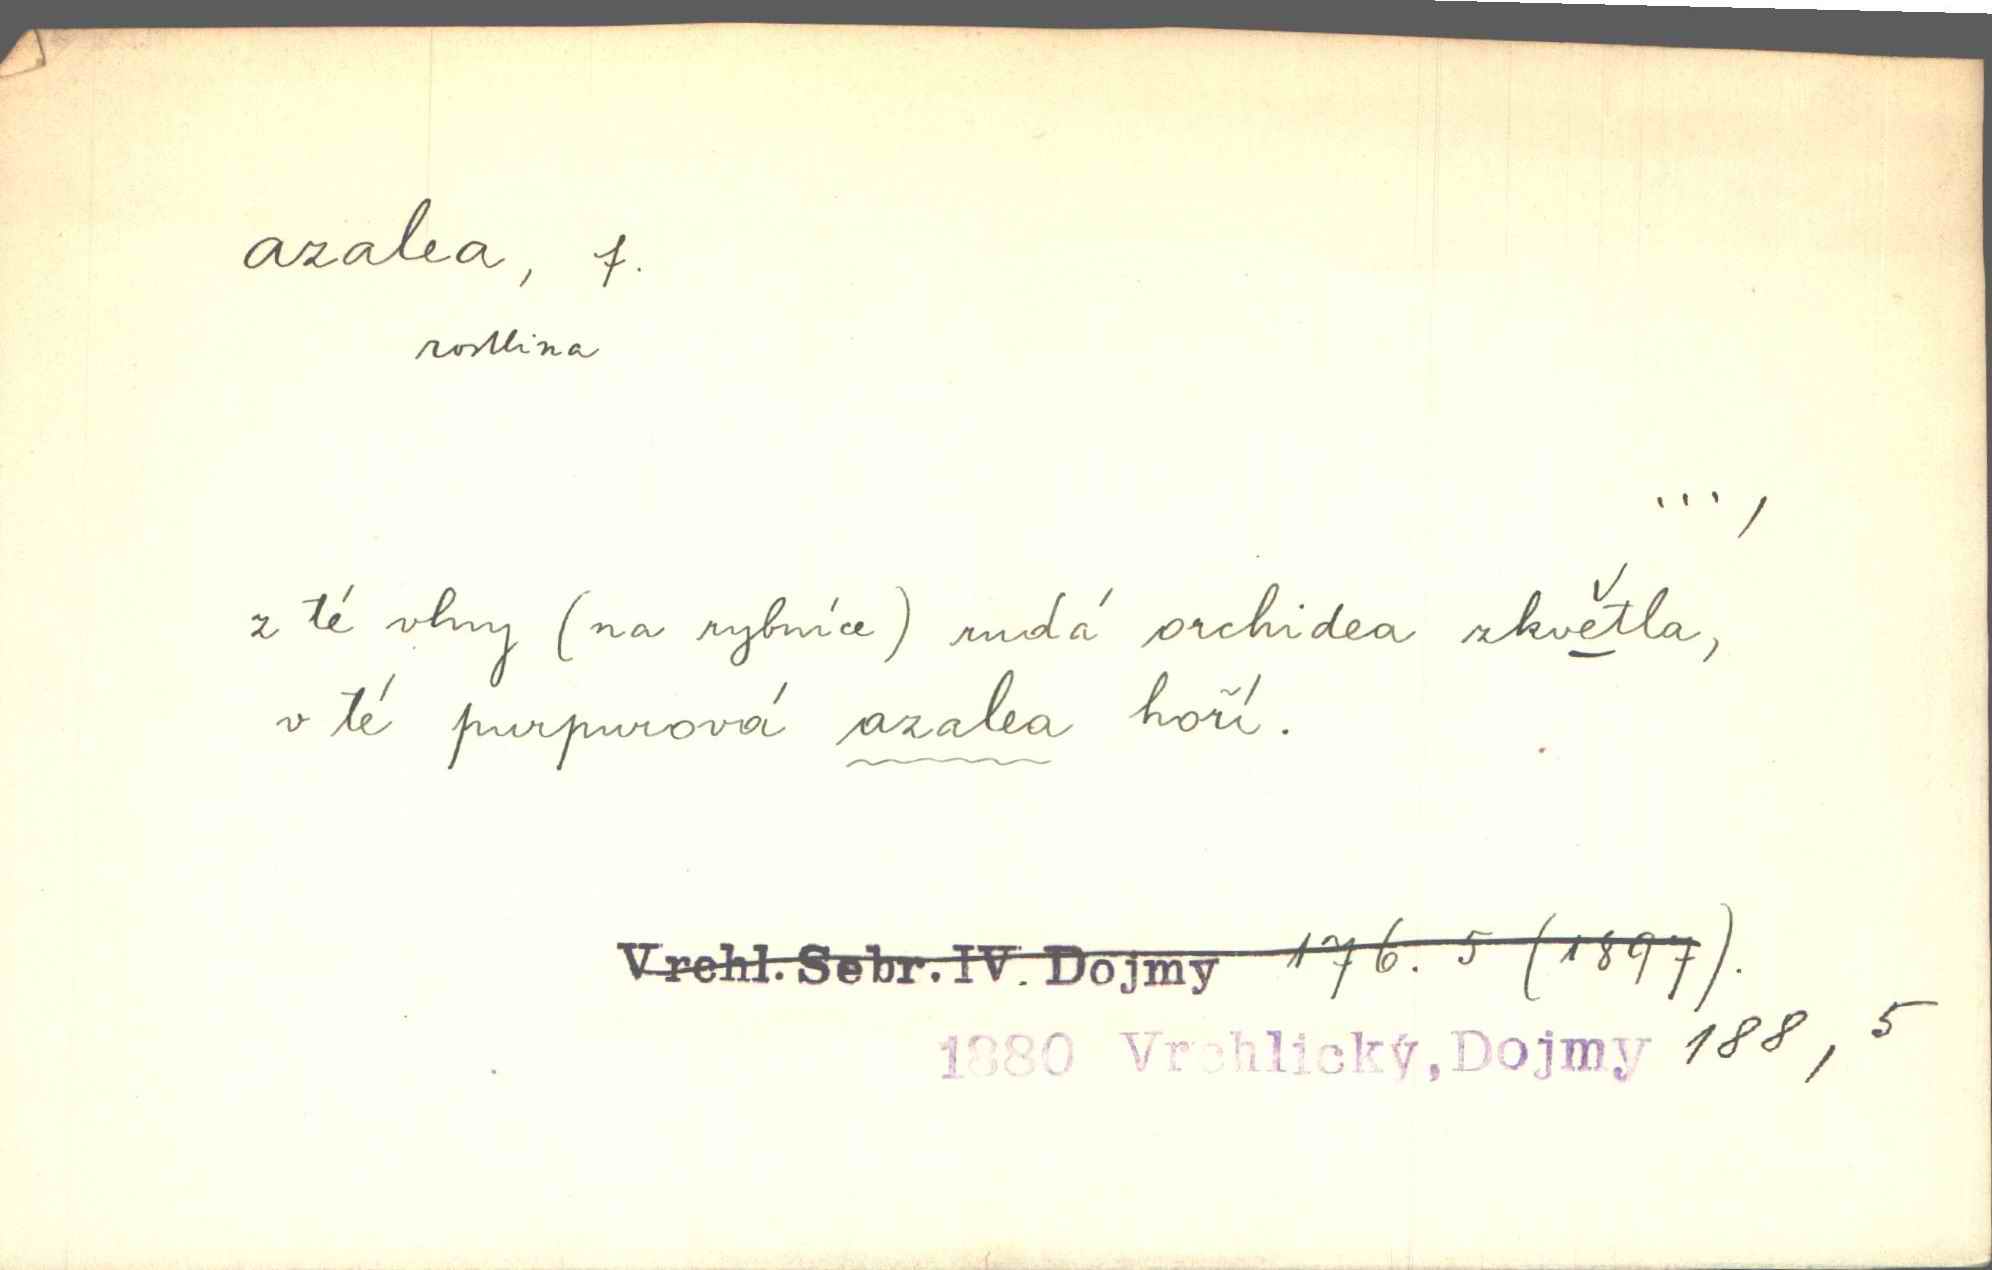 azalea, f.
rostlina
... ,
z té vlny (na rybníce) rudá orchidea zkvětla,
v té purpurová azalea hoří.
Vrchl. Sebr. IV. Dojmy 176. 5 (1897).
1880 Vrchlický, Dojmy 188, 5